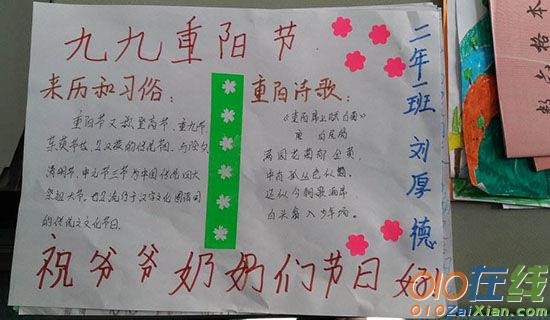 九九重阳节
来历和习俗：
重阳节又叫登高节、重九节、
茱萸节
清明节、中元节三节为中国传统四大
祭祖大节，也是流行于汉字文化圈诸国
的传统文化节日。
重阳诗歌：
唐 白居易
满园花菊郁金黄，
中有孤丛色似霜。
还从今朝歌酒席
白头翁入少年场。
二年一班 刘厚德
祝爷爷奶奶们节日好
数
格本
010在线
010ZaiXian.com